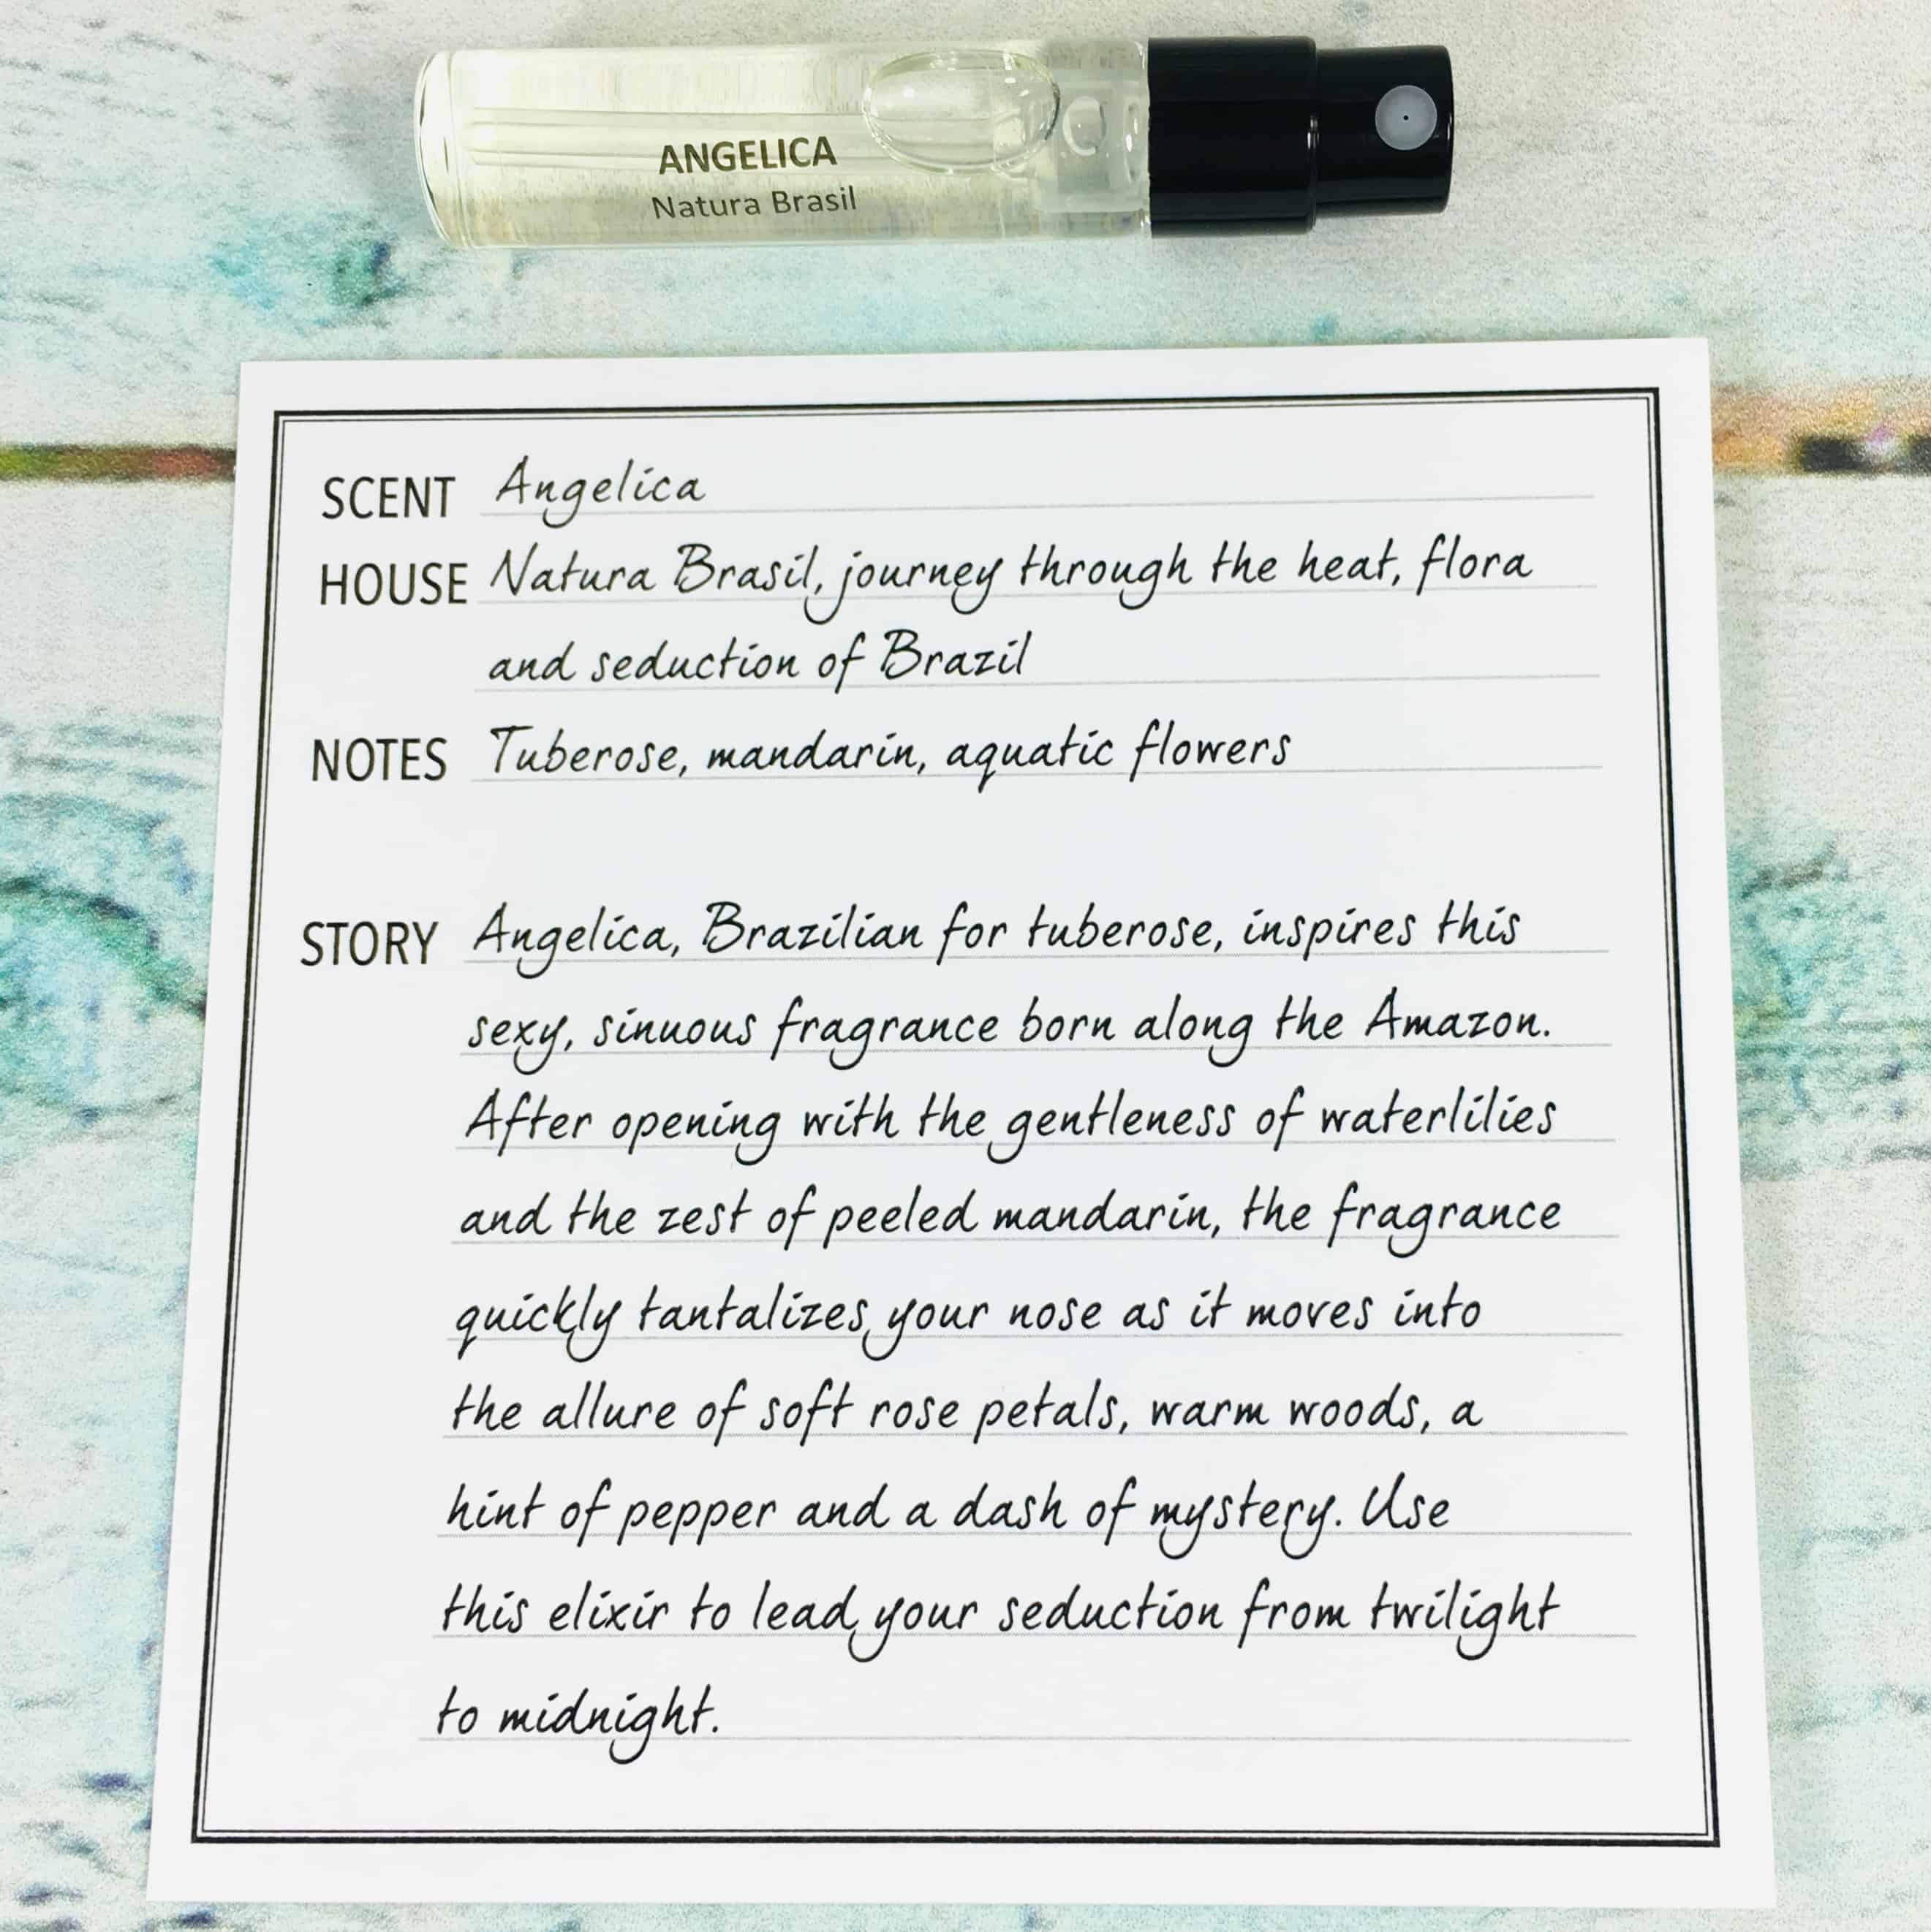 ANGELICA
Natura Brasil
SCENT Angelica
HOUSE Natura Brasil, journey through the heat, flora
and seduction of Brazil
NOTES Tuberose, mandarin, aquatic flowers
STORY Angelica, Brazilian for tuberose, inspires this
sexy, sinuous fragrance born along the Amazon.
After opening with the gentleness of waterlilies
and the zest of peeled mandarin, the fragrance
quickly tantalizes your nose as it moves into
the allure of soft rose petals, warm woods, a
hint of pepper and a dash of mystery. Use
this elixir to lead your seduction from twilight
to midnight.